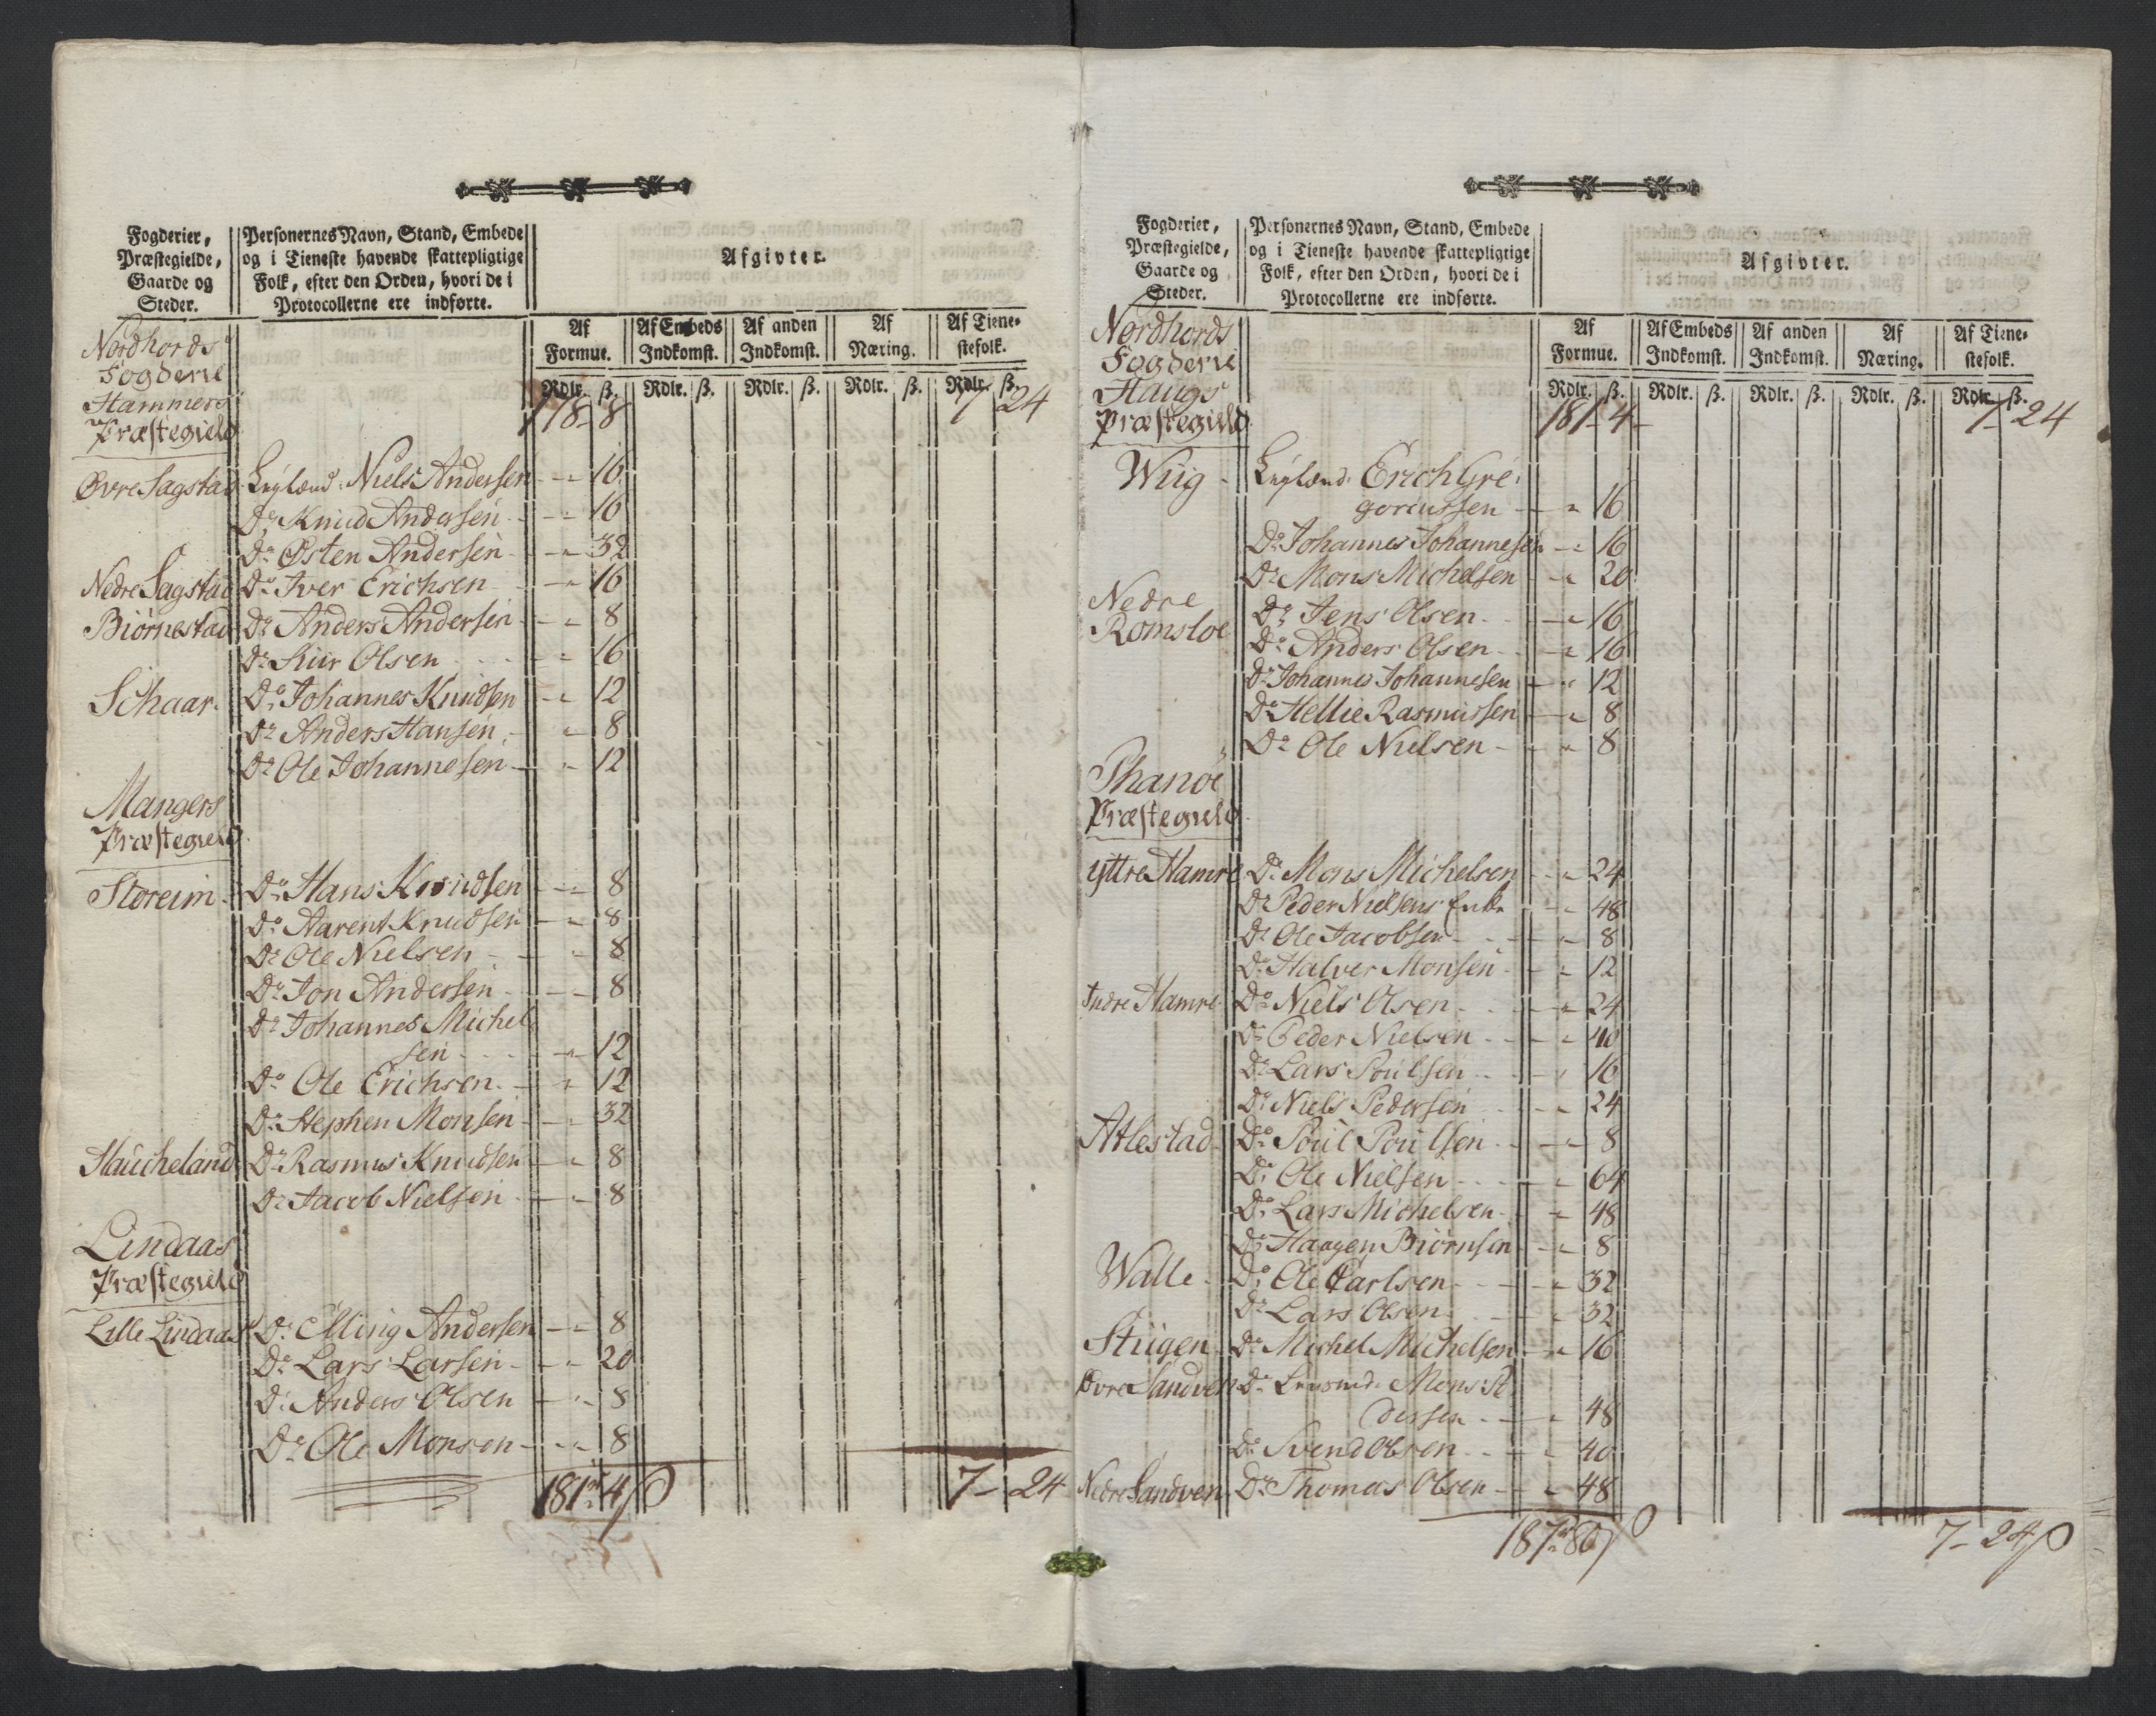 Fogderier,
Præstegielde,
Gaarde og
Steder.
Personernes Navn, Stand, Embede
og i Tieneste havende skattepligtige
Folk, efter den Orden, hvori de i
Protocollerne ere indførte.
Afgivter.
Af Formue.
Af Embeds Indkomst.
Af anden Indkomst.
Af Næring.
Af Tienestefolk.
Rdlr. ß. Rdlr. ß. Rdlr. ß. Rdlr. ß. Rdlr. ß.
Nordhords
Fogderie
Hammers
Præstegield
178 - 8 7 24
Øvre Sagstad Leylænd. Niels Andersen - 16
Do Knud Andersen - 16
Do Østen Andersen - 32
Nedre Sagstad Do Iver Erichsen - 16
Biørnestad Do Anders Andersen - 8
Do Siur Olsen - 16
Schaar. Do Johannes Knudsen - 12
Do Anders Hansen - 8
Do Ole Johannesen - 12
Mangers
Præstegield
Storeim Do Hans Knudsen - 8
Do Aarent Knudsen - 8
Do Ole Nielsen - 8
Do Jon Andersen - 8
Do Johannes Michel
sen - 12
Do Ole Erichsen - 12
Do Stephen Monsen - 32
Haucheland Do Rasmus Knudsen - 8
Do Jacob Nielsen - 8
Lindaas
Præstegield
Lille Lindaas Do Elling Andersen - 8
Do Lars Larsen - 20
Do Anders Olsen - 8
Do Ole Monsen - 8
181 rd 4 ß 7 - 24
Fogderier,
Præstegielde,
Gaarde og
Steder.
Personernes Navn, Stand, Embede
og i Tieneste havende skattepligtige
Folk, efter den Orden, hvori de i
Protocollerne ere indførte.
Afgivter.
Af Formue.
Af Embeds Indkomst.
Af anden Indkomst.
Af Næring.
Af Tienestefolk.
Rdlr. ß. Rdlr. ß. Rdlr. ß. Rdlr. ß. Rdlr. ß.
Nordhords
Fogderie
Haugs
Præstegield
181 - 4 - 7 - 24
Wiig - Leylænd. Erich Gre
goriussen - 16
Do Johannes Johannesen - 16
Do Mons Michelsen - 20
Nedre
Romsloe Do Jens Olsen - 16
Do Anders Olsen - 16
Do Johannes Johannesen - 12
Do Hellie Rasmussen - 8
Do Ole Nielsen - 8
Phanøe
Præstegield
Yttre Hamre Do Mons Michelsen - 24
Do Peder Nielsens Enke - 48
Do Ole Jacobsen - 8
Do Halver Monsen - 12
Indre Hamre Do Niels Olsen - 24
Do Peder Nielsen - 40
Do Lars Poulsen - 16
Do Niels Pedersen - 24
Atlestad Do Poul Poulsen - 8
Do Ole Nielsen - 64
Do Lars Michelsen - 48
Do Haagen Biørnsen - 8
Walle - Do Ole Carlsen - 32
Do Lars Olsen - 32
Stiigen Do Michel Michelsen - 16
Øvre Sandven Do Mons Pe
dersen - 48
Do Svend Olsen - 40
Nedre Sandven Do Thomas Olsen - 48
187 rd 80 ß 7 - 24 ß